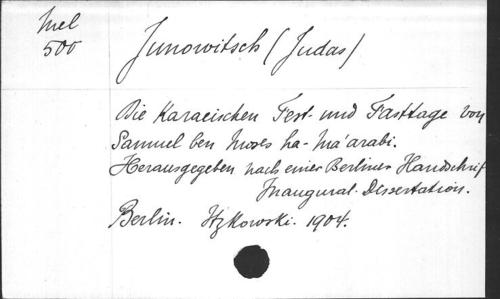 Mel
500
Junowitsch (Judas)
Die Karaeischen Fest- und Fasttage von
Samuel ben Moses ha-Ma'arabi.
Herausgegeben nach einer Berliner Handschrif
Inaugural-Dissertation.
Berlin. Itzkowski. 1904.